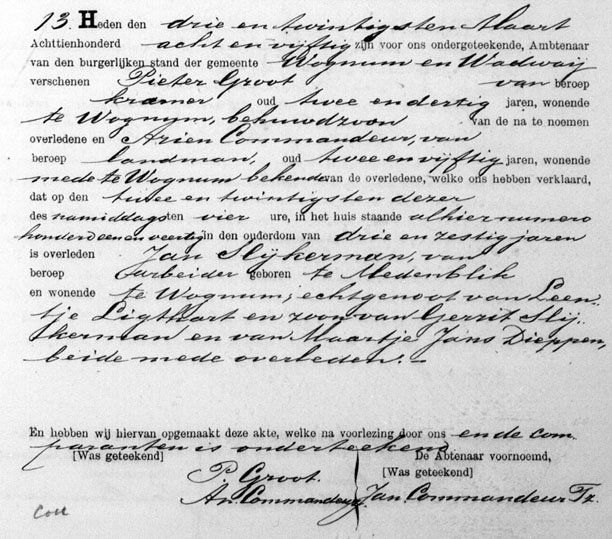 13. Heden den drie en twintigsten Maart
Achttienhonderd acht en vijftig zijn voor ons ondergeteekende, Ambtenaar
van den burgerlijken stand der gemeente Wognum en Wadway
verschenen Pieter Groot van beroep
kramer oud twee en dertig jaren, wonende
te Wognum, behuwdzoon van de na te noemen
overledene en Arien Commandeur, van
beroep landman, oud twee en vijftig jaren, wonende
mede te Wognum bekende van de overledene, welke ons hebben verklaard,
dat op den twee en twintigsten dezer
des namiddags ten vier ure, in het huis staande alhier numero
honderd een en veertig in den ouderdom van drie en zestig jaren
is overleden Jan Slijkerman, van
beroep arbeider geboren te Medenblik
en wonende te Wognum; echtgenoot van Leen-
tje Ligthart en zoon van Gerrit Slij-
kerman en van Maartje Jans Dieppen,
beide mede overleden. —
En hebben wij hiervan opgemaakt deze akte, welke na voorlezing door ons en de com-
paranten is onderteekend
[Was geteekend] De Abtenaar voornoemd,
P. Groot. [Was geteekend]
Ar. Commandeur Jan Commandeur Tz.